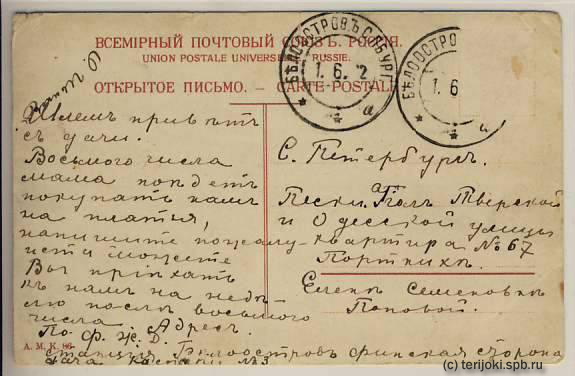 ВСЕМІРНЫЙ ПОЧТОВЫЙ СОЮЗЪ. РОССІЯ.
UNION POSTALE UNIVERSELLE. RUSSIE.
ОТКРЫТОЕ ПИСЬМО. — CARTE-POSTALE
БѢЛООСТРОВЪ С.П.БУРГ.
1. 6. 12
a
БѢЛООСТРО
1. 6
a
Шлемъ привѣтъ
съ дачи.
Восьмого числа
мама поѣдетъ
покупать намъ
на платья,
напишите пожалу-
иста можете
Вы пріѣхать
къ намъ на недѣ
лю послѣ восьмого
числа
По Ф. Ж. Д. Адресъ.
станція Бѣлоостровъ финская сторона
дача №3
С. Петербургъ.
Пески. Уголъ Тверской
и Одесской улицы
квартира № 67
Портнихѣ
Еленѣ Семеновнѣ
Поповой.
А. М. К. 86
(c) terijoki.spb.ru